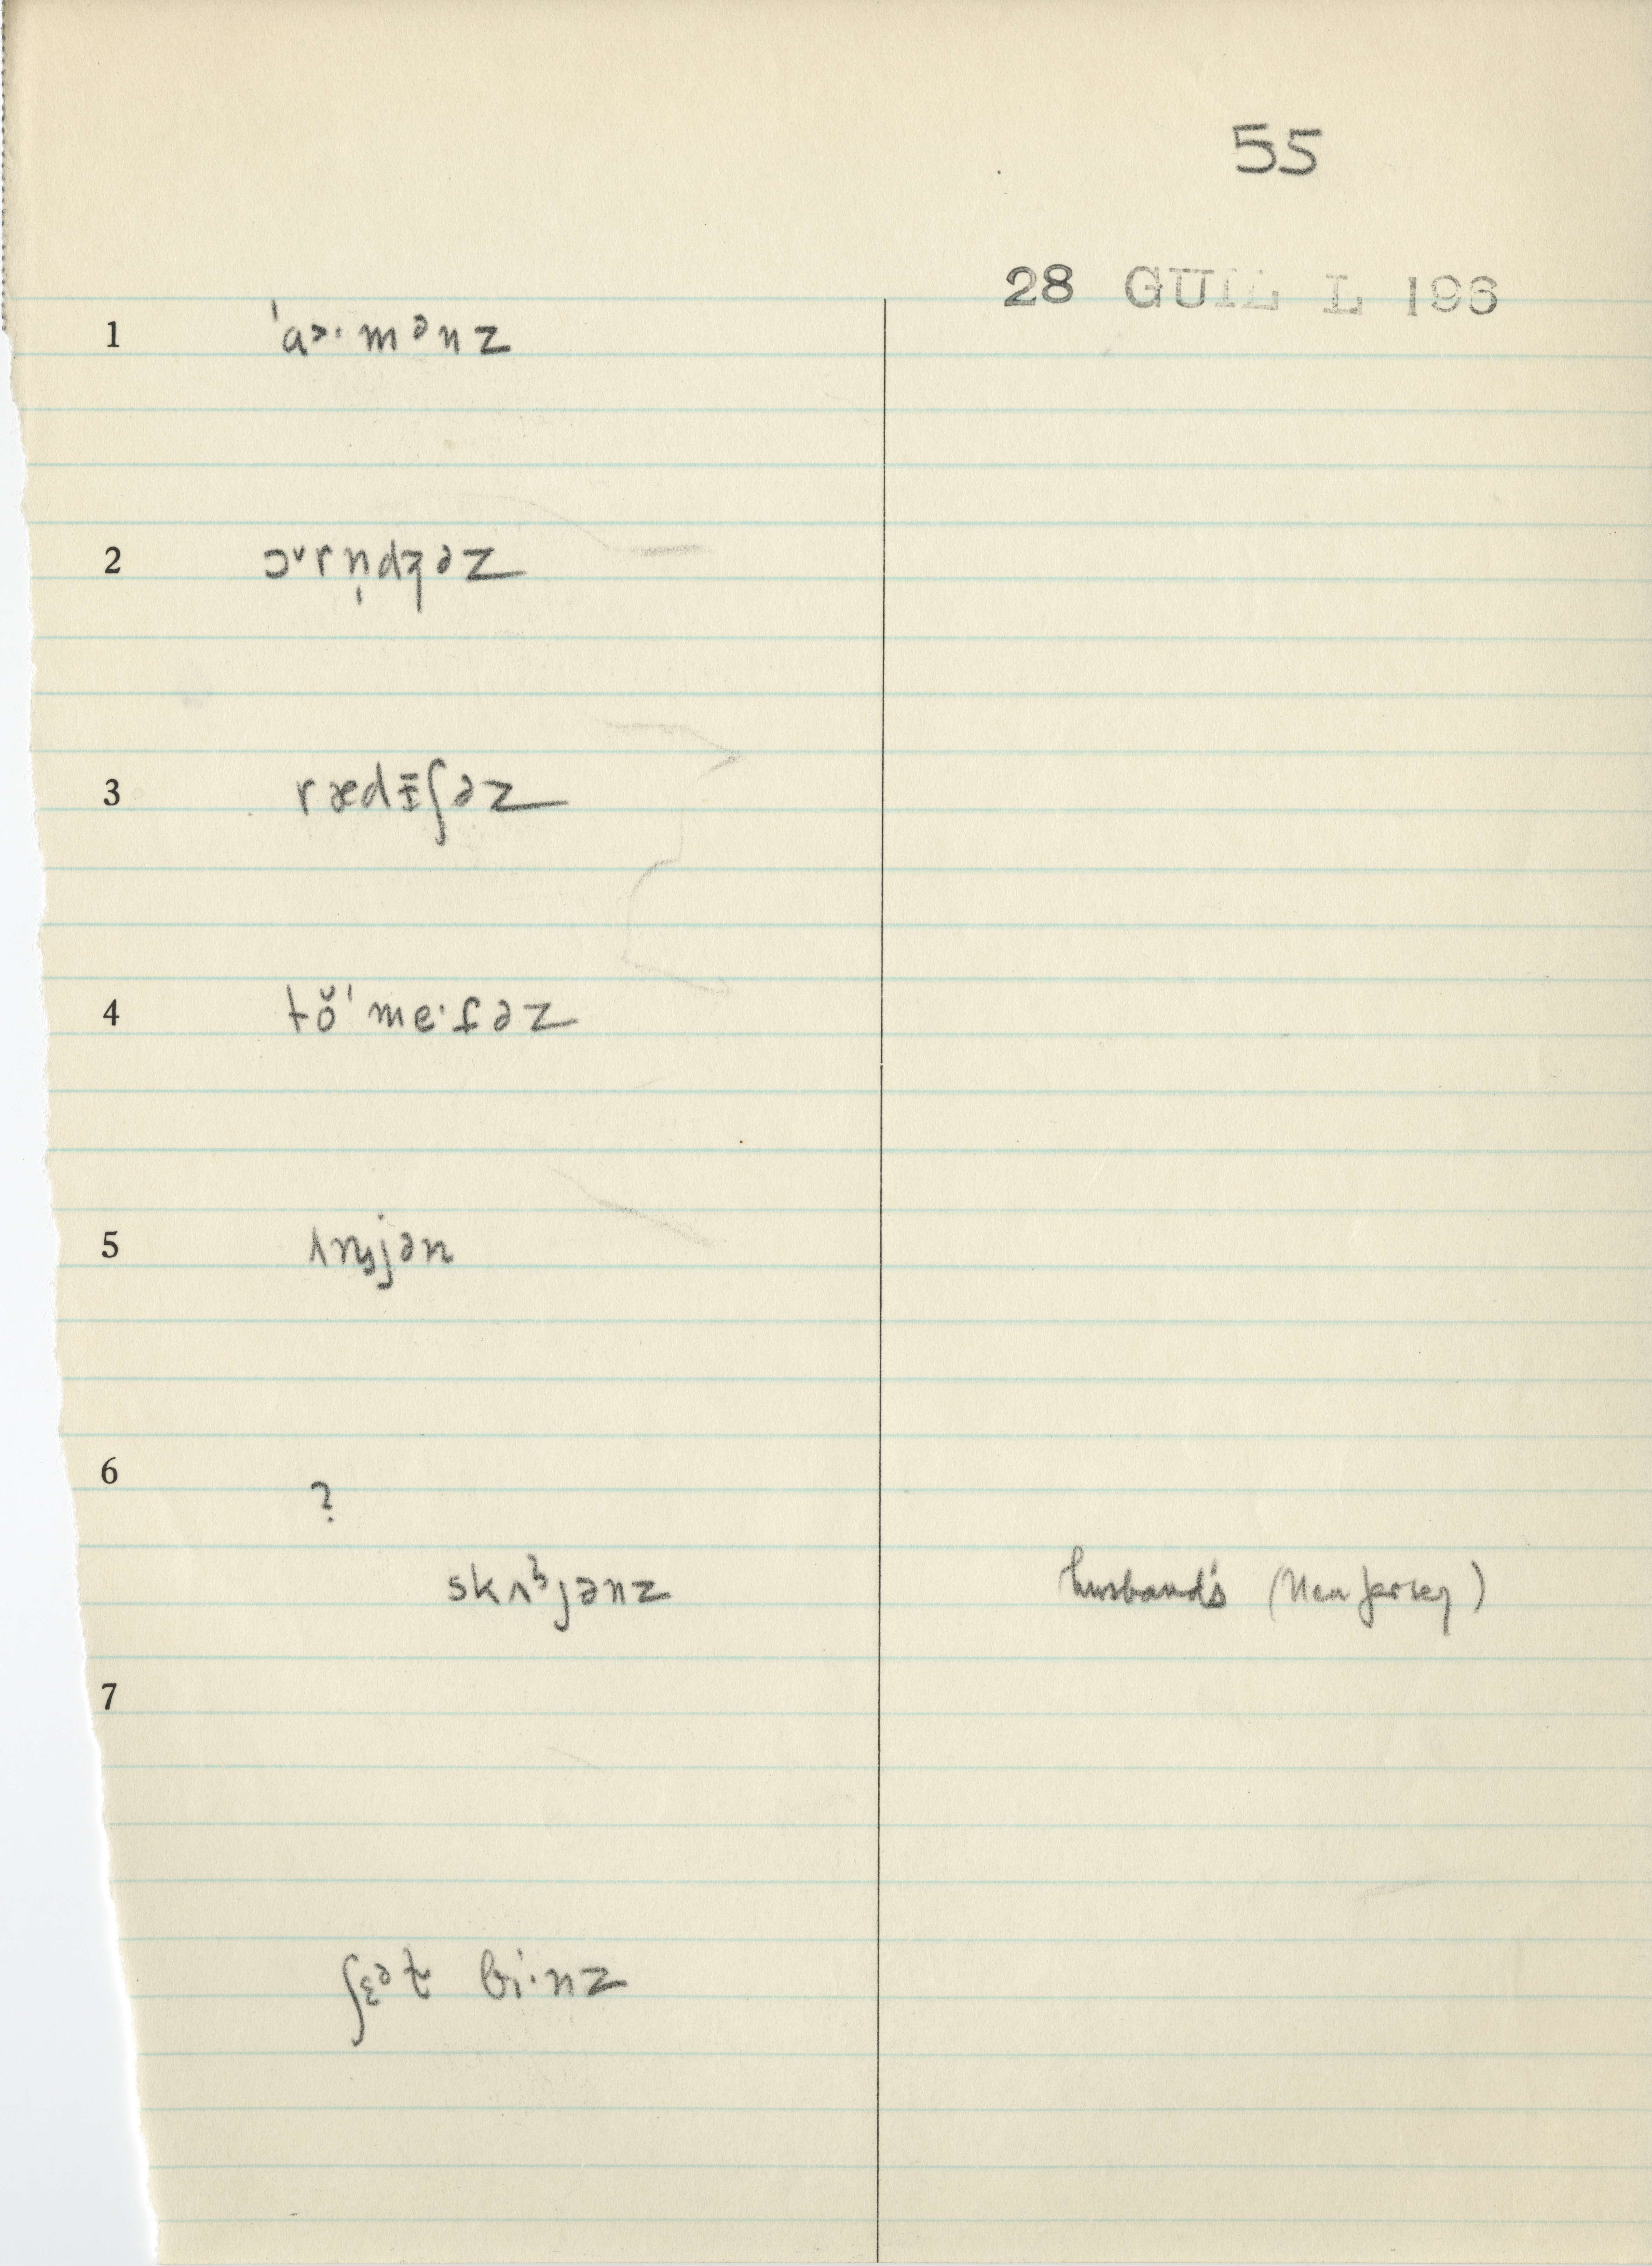 55
28 GUIL L 196
1 ˈɑ>·mənz
2 ɔ˅rn̩dʒəz
3 rædɪ̵ʃəz
4 tŏˈme·ɾəz
5 ʌnjən
6 ?
skʌɜjənz husband's (New Jersey)
7
ʃɛət bi·nz